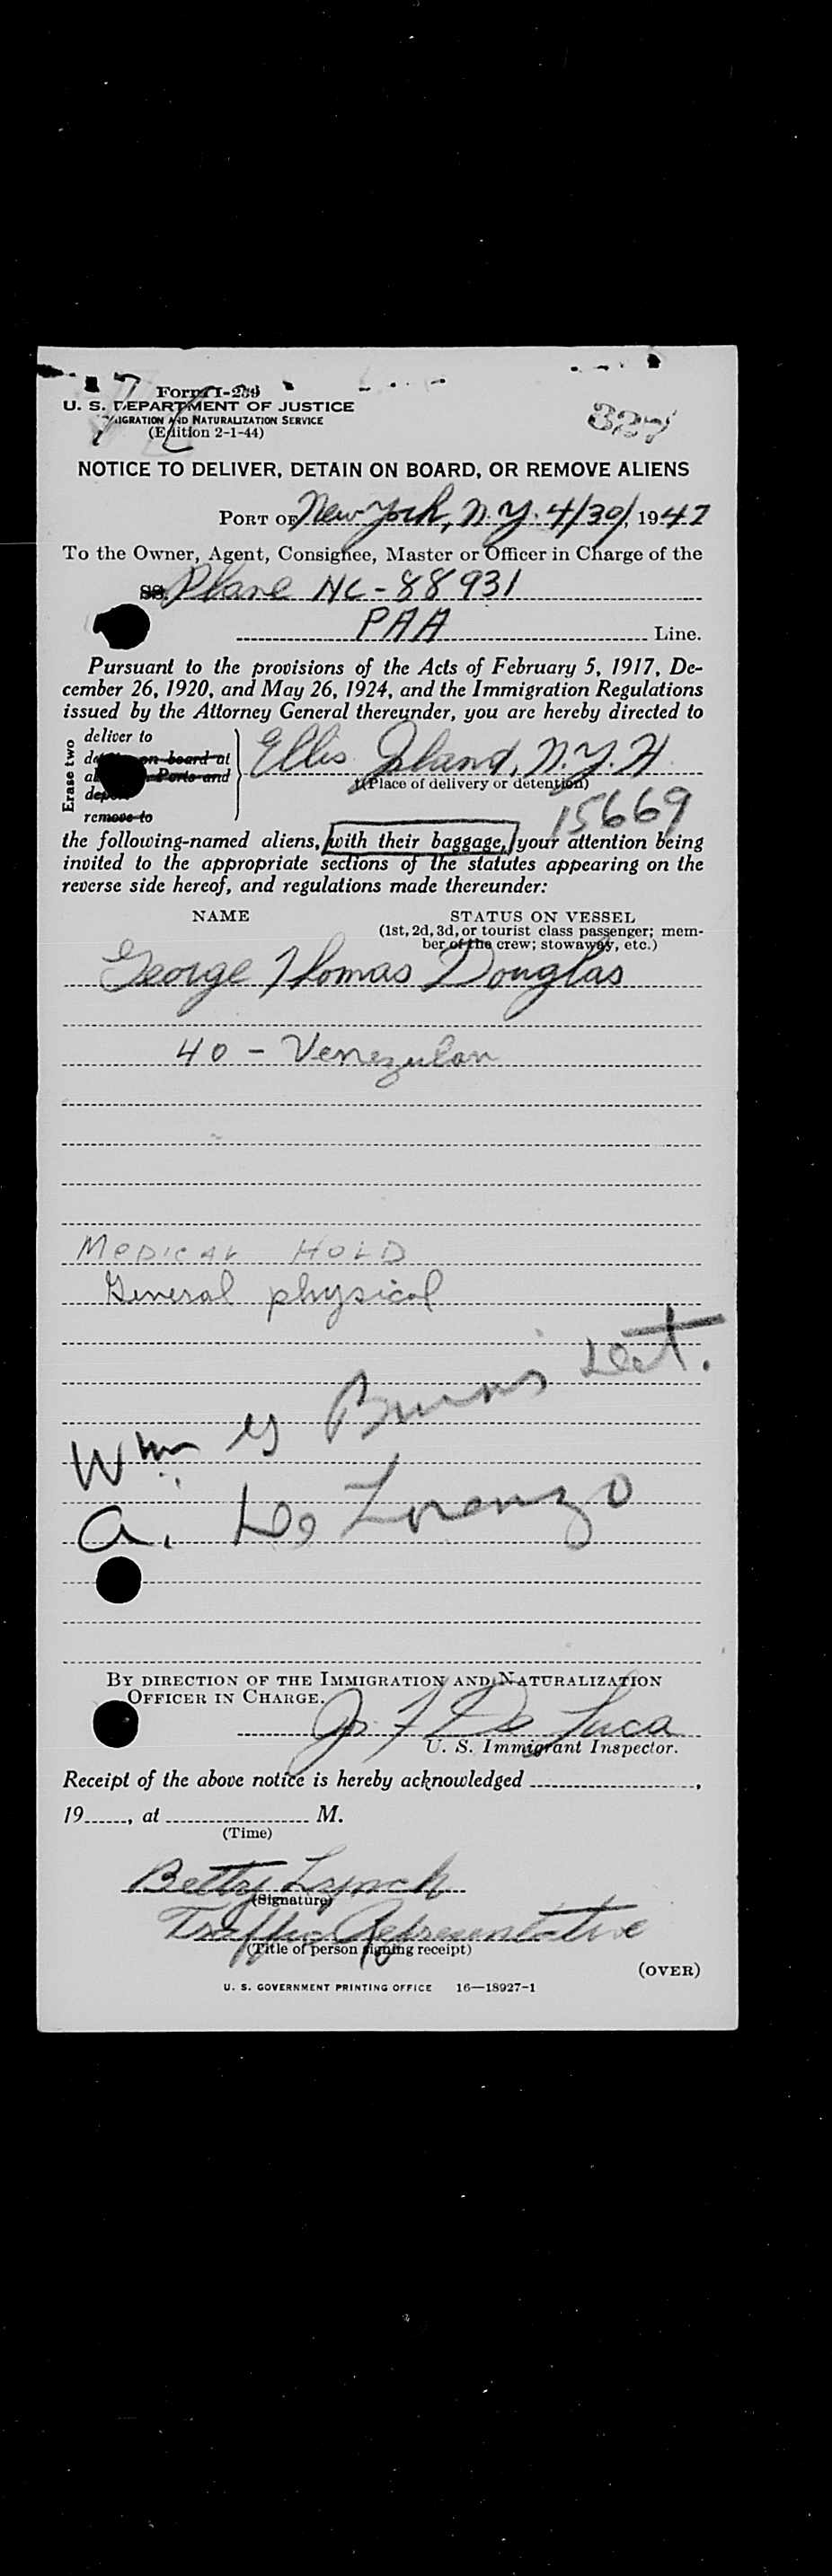 Form I-259
U. S. DEPARTMENT OF JUSTICE
IMMIGRATION AND NATURALIZATION SERVICE
(Edition 2-1-44)
327
NOTICE TO DELIVER, DETAIN ON BOARD, OR REMOVE ALIENS
PORT OF New York, N.Y. 4/30/, 1947
To the Owner, Agent, Consignee, Master or Officer in Charge of the
SS. Plane NC-88931
PAA Line.
Pursuant to the provisions of the Acts of February 5, 1917, De-
cember 26, 1920, and May 26, 1924, and the Immigration Regulations
issued by the Attorney General thereunder, you are hereby directed to
Erase two
deliver to
on board at
Ports and
remove to
Ellis Island, N.Y.H
(Place of delivery or detention)
15669
the following-named aliens, with their baggage, your attention being
invited to the appropriate sections of the statutes appearing on the
reverse side hereof, and regulations made thereunder:
NAME STATUS ON VESSEL
(1st, 2d, 3d, or tourist class passenger; mem-
ber of the crew; stowaway, etc.)
George Thomas Douglas
40 - Venezulan
MEDICAL HOLD
General physical
Det.
Wm G Burns
A. De Lorenzo
BY DIRECTION OF THE IMMIGRATION AND NATURALIZATION
OFFICER IN CHARGE.
De Luca
U. S. Immigrant Inspector.
Receipt of the above notice is hereby acknowledged ,
19 , at M.
(Time)
Betty Lynch
(Signature)
Traffic Representative
(Title of person signing receipt)
(OVER)
U. S. GOVERNMENT PRINTING OFFICE 16—18927-1